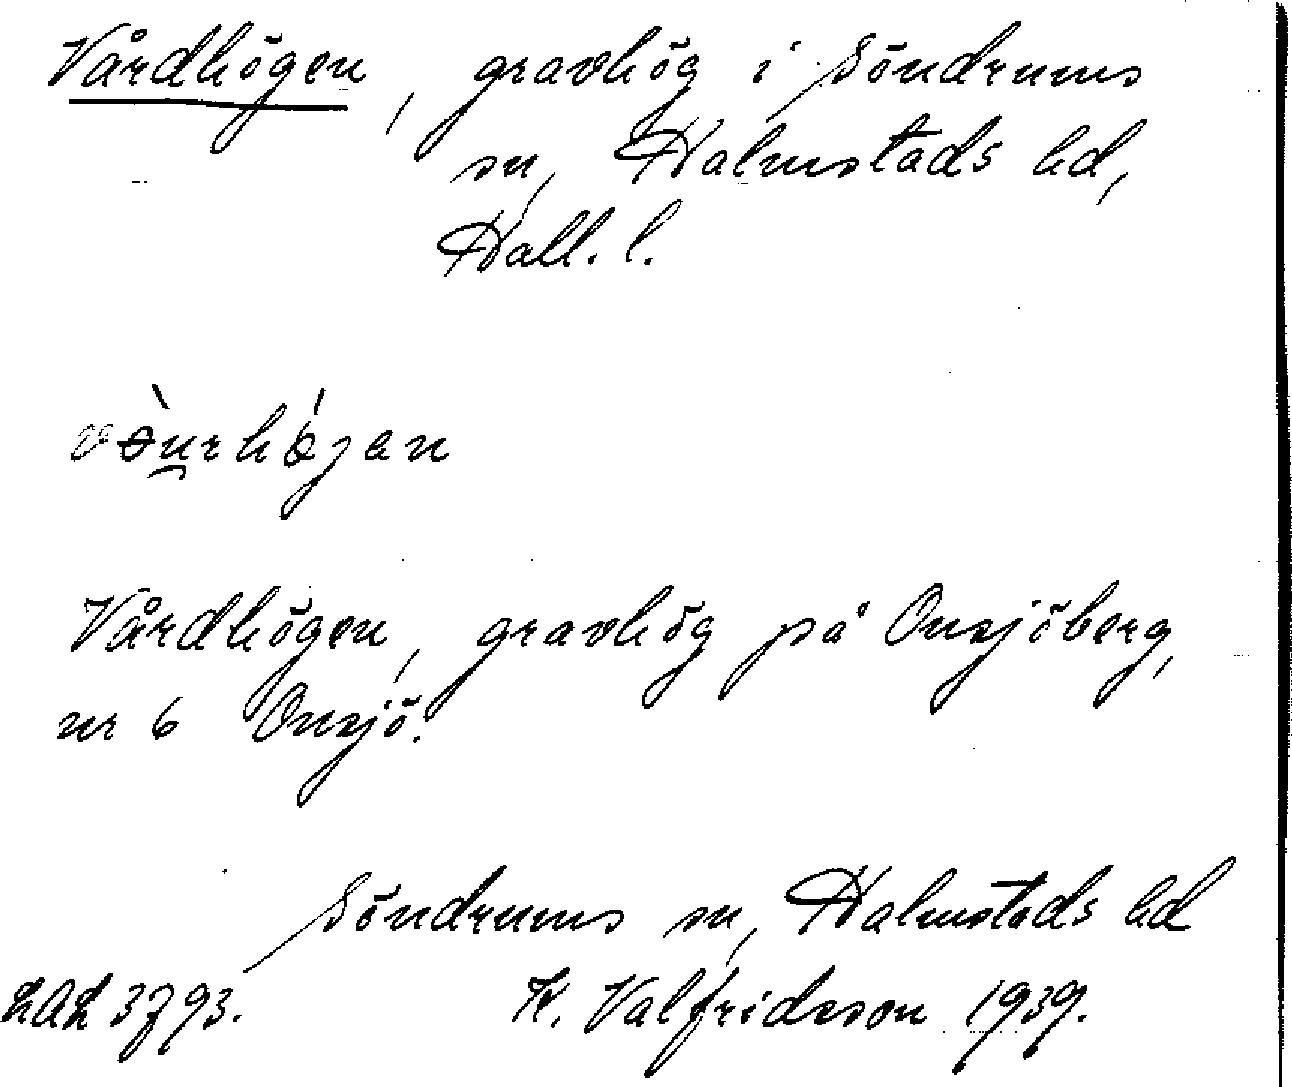 Vårdhögen, gravhög i Söndrums
sn, Halmstads hd,
Hall. l.
Vårdhögen, gravhög på Onsjöberg,
nr 6 Onsjö.
Söndrums sn, Halmstads hd
LAL 3793. K. Valfridsson 1939.